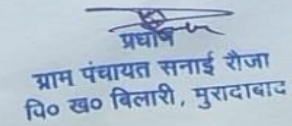 प्रधान
ग्राम पंचायत सनाई रौजा
पि० ख० बिलारी, मुरादाबाद